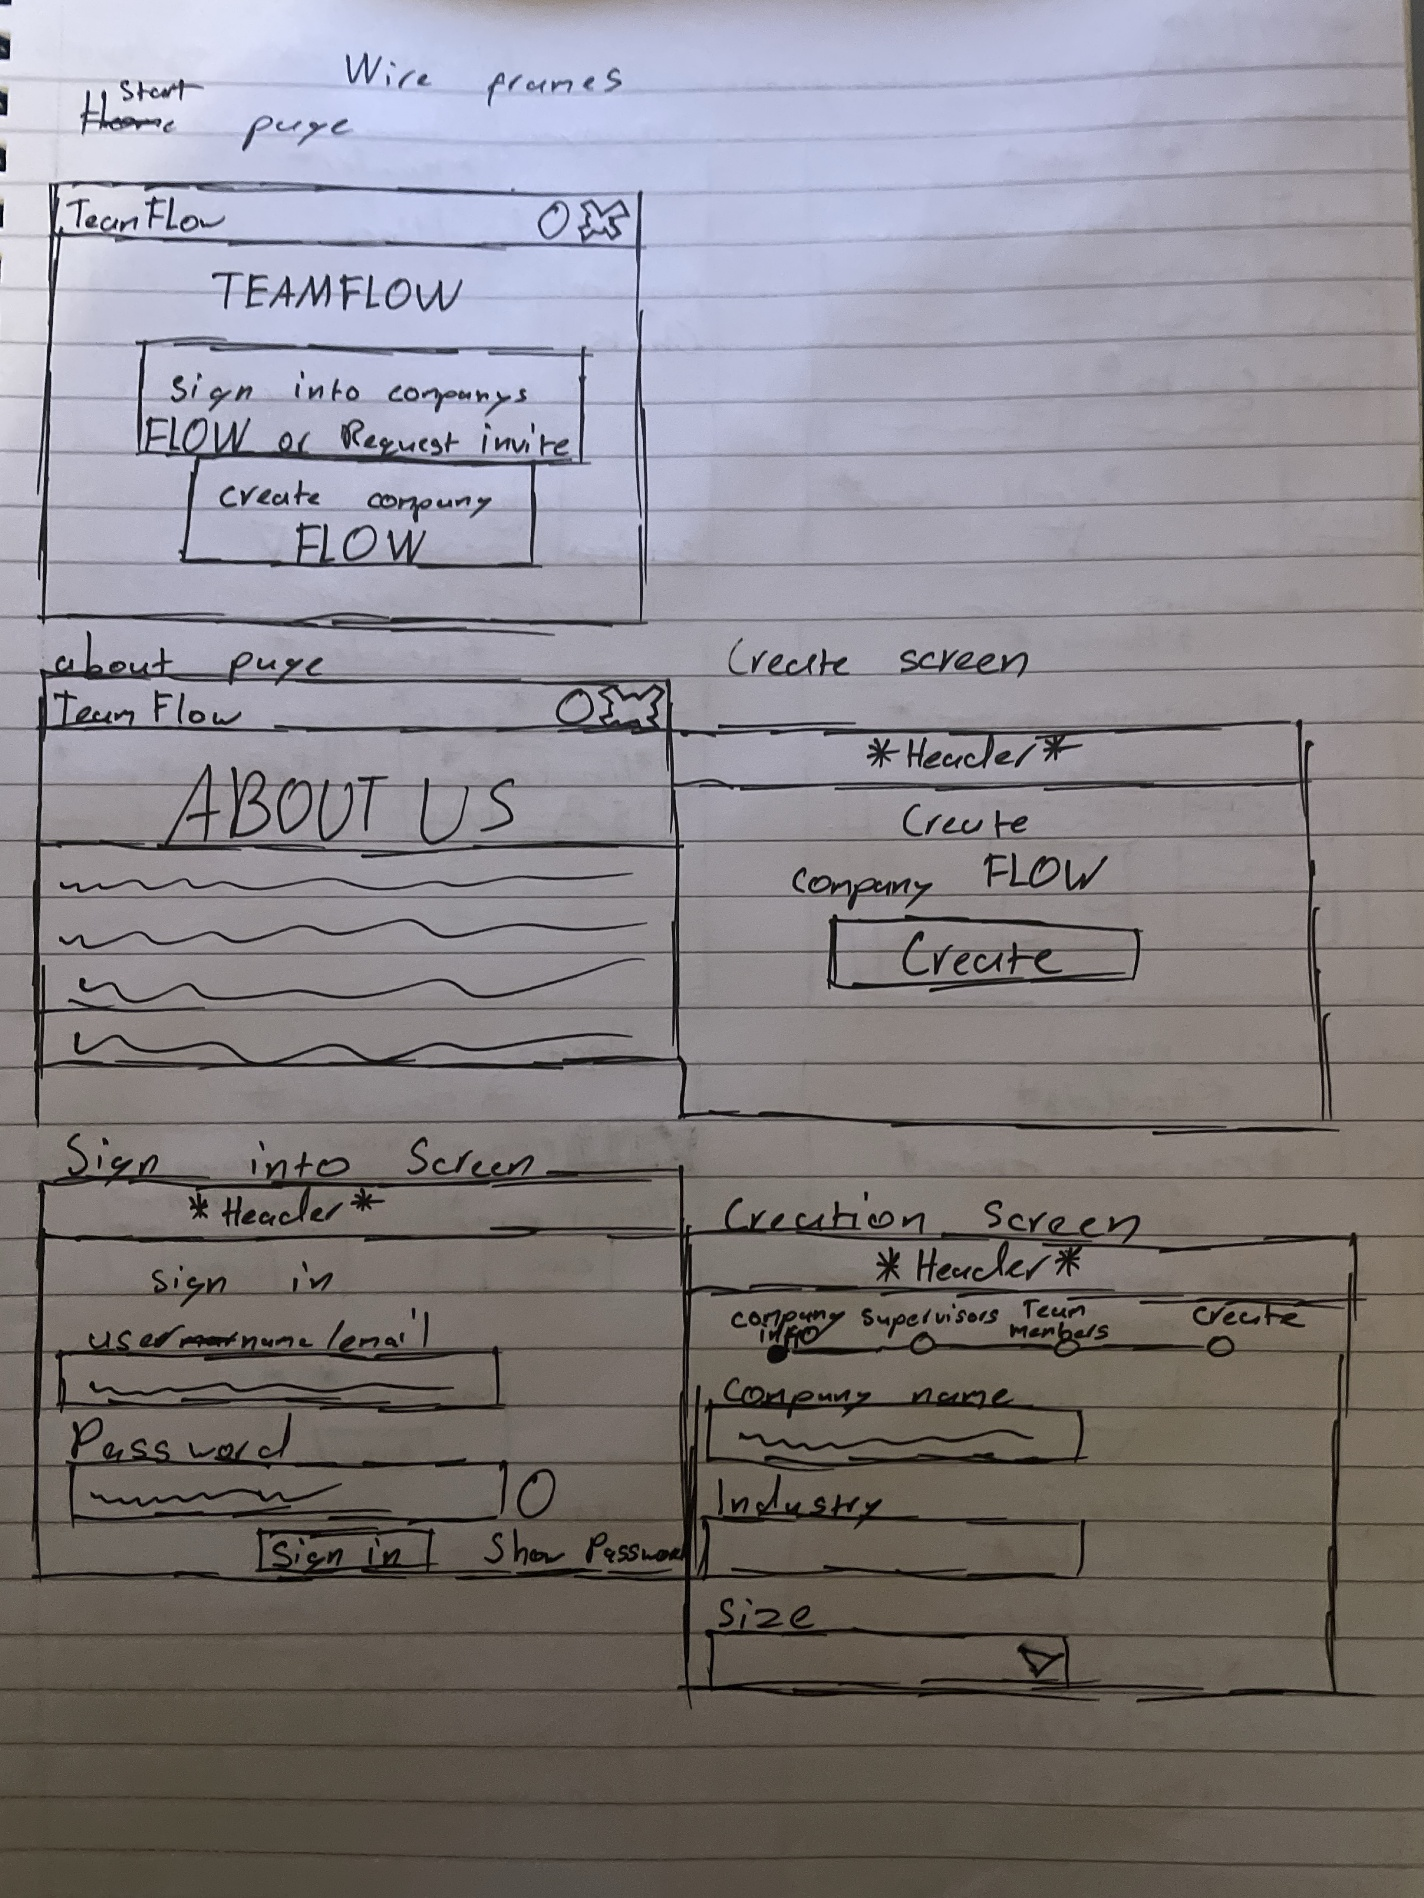 Wire frames
Start
page
TeamFlow
TEAMFLOW
Sign into companys
FLOW or Request invite
Create company
FLOW
about page
Team Flow
ABOUT US
Create screen
*Header*
Create
company FLOW
Create
Sign into Screen
*Header*
sign in
username/email
Password
Sign in
Show Password
Creation Screen
*Header*
company info
supervisors
Team members
Create
Company name
Industry
Size